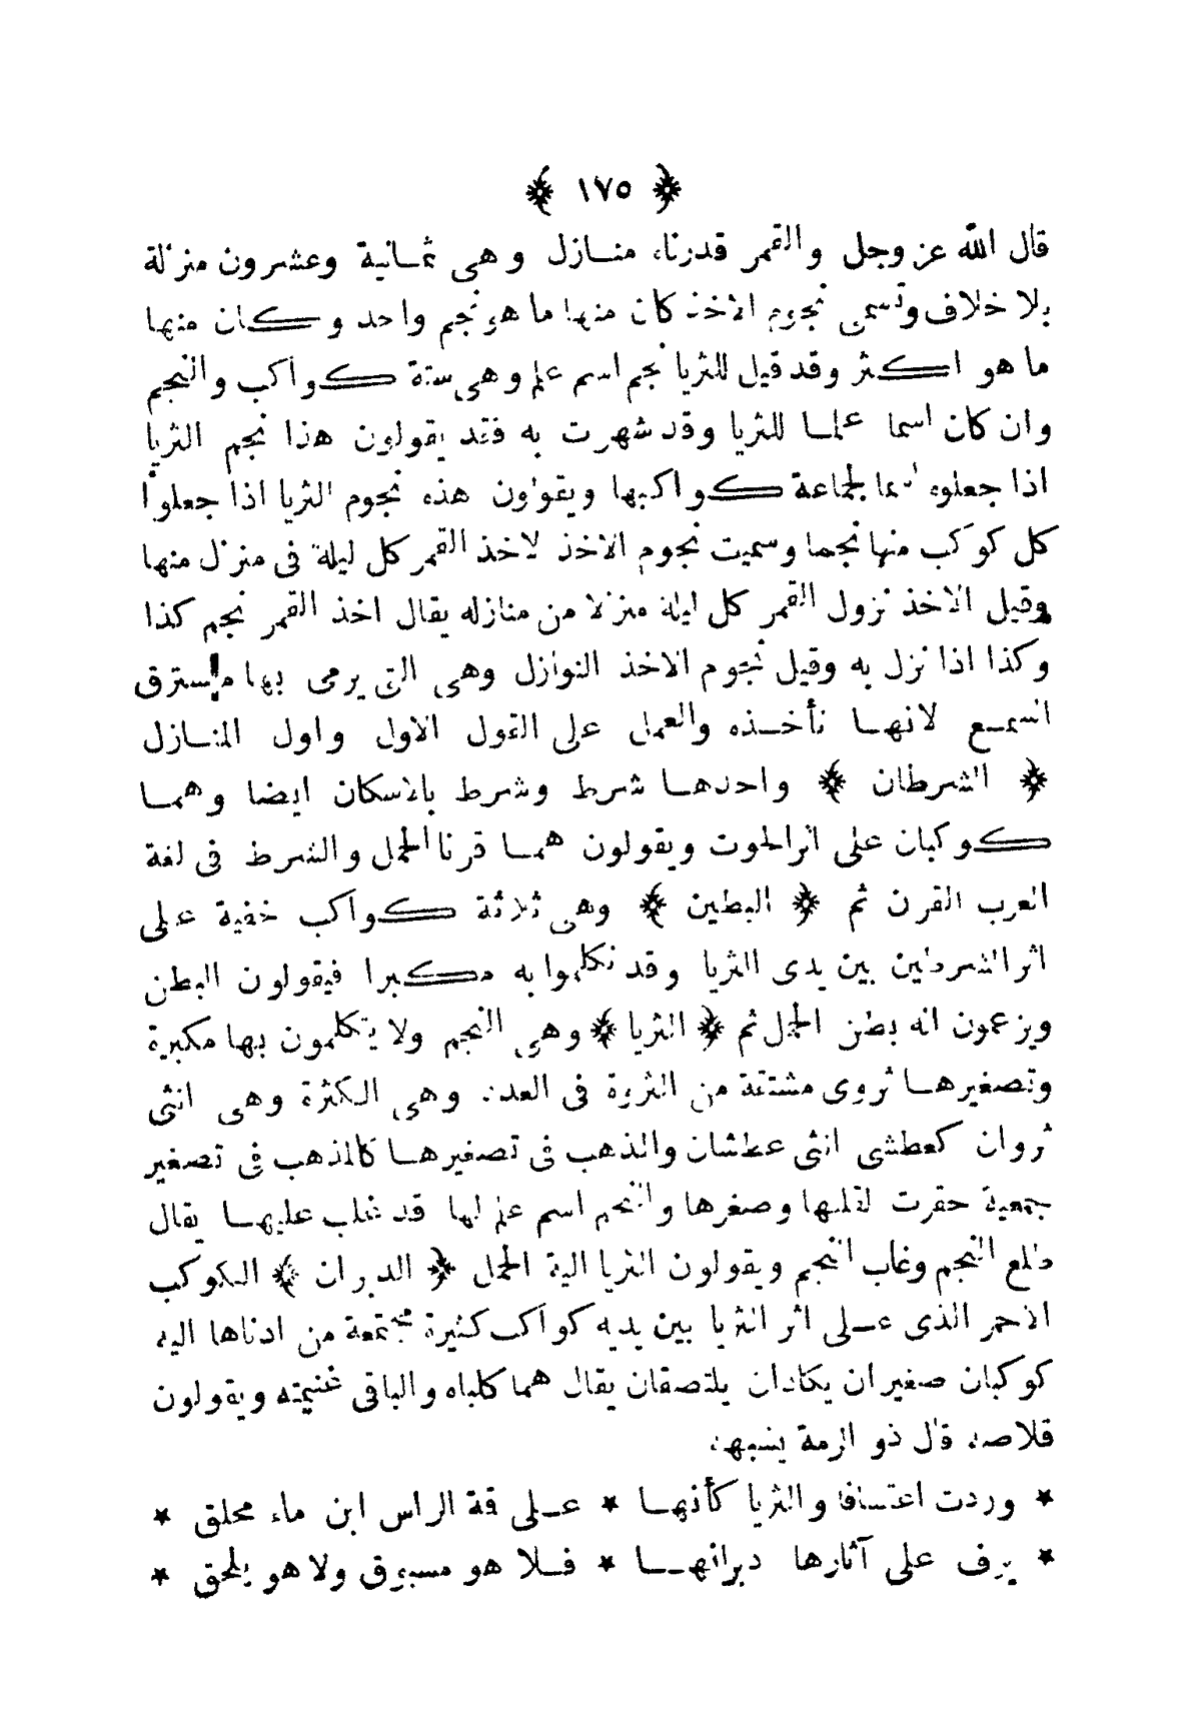 ﴿ ١٧٥ ﴾
قال الله عز وجل والقمر قدرناه منازل وهى ثمانية وعشرون منزلة
بلا خلاف وتسمى نجوم الاخذ كان منها ما هو نجم واحد وكان منها
ما هو اكثر وقد قيل للثريا نجم اسم علم وهى ستة كواكب والنجم
وان كان اسما علما للثريا وقد شهرت به فقد يقولون هذا نجم الثريا
اذا جعلوه اسما لجماعة كواكبها ويقولون هذه نجوم الثريا اذا جعلوا
كل كوكب منها نجما وسميت نجوم الاخذ لاخذ القمر كل ليلة فى منزل منها
وقيل الاخذ نزول القمر كل ليلة منزلا من منازله يقال اخذ القمر نجم كذا
وكذا اذا نزل به وقيل نجوم الاخذ النوازل وهى التى يرمى بها مسترق
السمع لانها تأخذه والعمل على القول الاول واول المنازل
﴿ الشرطان ﴾ واحدها شرط وشرط بالاسكان ايضا وهما
كوكبان على اثر الحوت ويقولون هما قرنا الحمل والشرط فى لغة
العرب القرن ثم ﴿ البطين ﴾ وهى ثلاثة كواكب خفية على
اثر الشرطين بين يدى الثريا وقد تكلموا به مكبرا فيقولون البطن
ويزعمون انه بطن الحمل ثم ﴿ الثريا ﴾ وهى النجم ولا يتكلمون بها مكبرة
وتصغيرها ثروى مشتقة من الثروة فى العدد وهى الكثرة وهى انثى
ثروان كعطشى انثى عطشان والذهب فى تصغيرها كالمذهب فى تصغير
جمعية حقرت لقلبها وصغرها والنجم اسم علم لها قد غلب عليها يقال
طلع النجم وغاب النجم ويقولون الثريا الية الحمل ﴿ الدبران ﴾ الكوكب
الاحمر الذى على اثر الثريا بين يديه كواكب كثيرة مجتمعة من ادناها اليه
كوكبان صغيران يكادان يلتصقان يقال هما كلباه والباقى غنيمته ويقولون
قلاصه قال ذو الرمة يشبهه
* وردت اعتسافا والثريا كأنها * على قة الراس ابن ماء محلق *
* يرف على آثارها دبرانها * فلا هو مسبوق ولا هو يلحق *